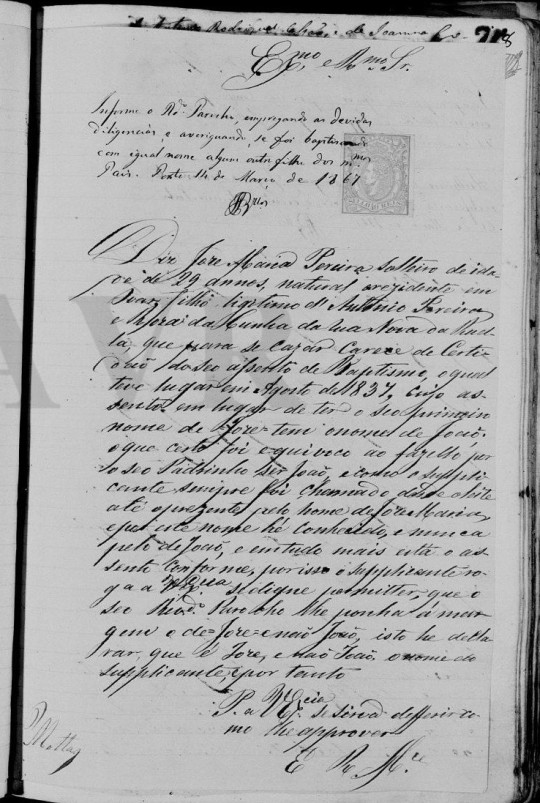 Exmo e Rmo Sr.
Informe o Rdo Parocho, empregando as devidas
diligencias e averiguando, se foi baptisado
com igual nome algum outro filho dos mmos
Pais. Porto 14 de Março de 1867
Diz Joze Maria Pereira solteiro de ida
de de 29 annos, natural e rezidente em
Ovar, filho legitimo d'Antonio Pereira
e Roza da Cunha da rua Nova da
que para se cazar carece de Certi
do seo assento de Baptismo, o qual
teve lugar em Agosto de 1837, cujo as
sento em lugar de ter o seu primeiro
nome de Joze tem o nome de João,
o que certo foi equivoco ao fazello por
o seo Padrinho ser João, e como o suppli
cante sempre foi chamado desde
até o prezente pelo nome de Joze Maria,
e por este nome hé conhecido, e nunca
pelo de João, e em tudo mais está o as
sento conforme, por isso o supplicante ro
ga a V. Excia se digne permitter, que o
seo Rdo Parocho lhe ponha á mar
gem o de Joze e não João, isto he decla
rar, que é Joze, e não João o nome do
supplicante, e por tanto
P. a V. Excia se sirva defferir co
mo lhe approver
E R Mce
P. Motta